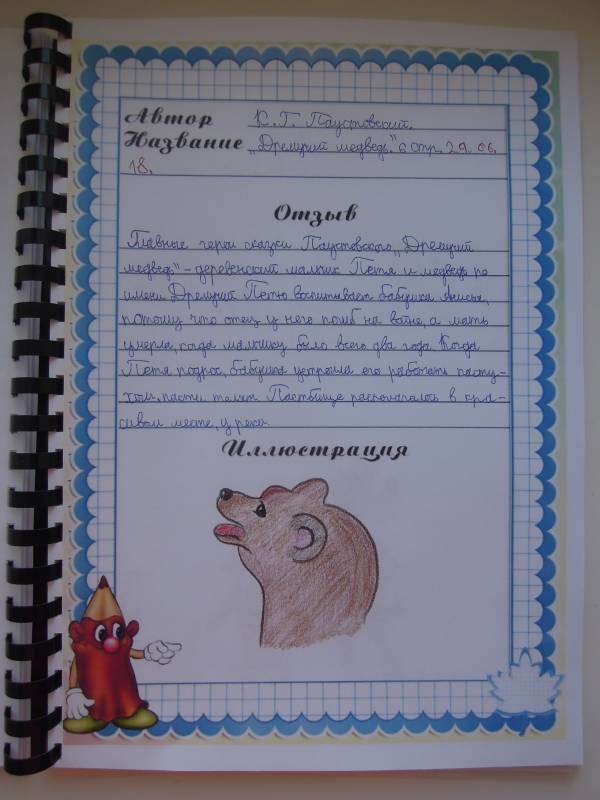 Автор К.Г. Паустовский.
Название „Дремучий медведь." с Стр. 29. 06.
18.
Отзыв
Главные герои сказки Паустовского „Дремучий
медведь" - деревенский мальчик Петя и медведь по
имени Дремучий. Петю воспитывает бабушка Анисья,
потому что отец у него погиб на войне, а мать
умерла, когда малышку было всего два года. Когда
Петя подрос, бабушка устроила его работать пасту-
хом, пасти телят. Пастбище располагалось в кра-
сивом месте, у реки.
Иллюстрация